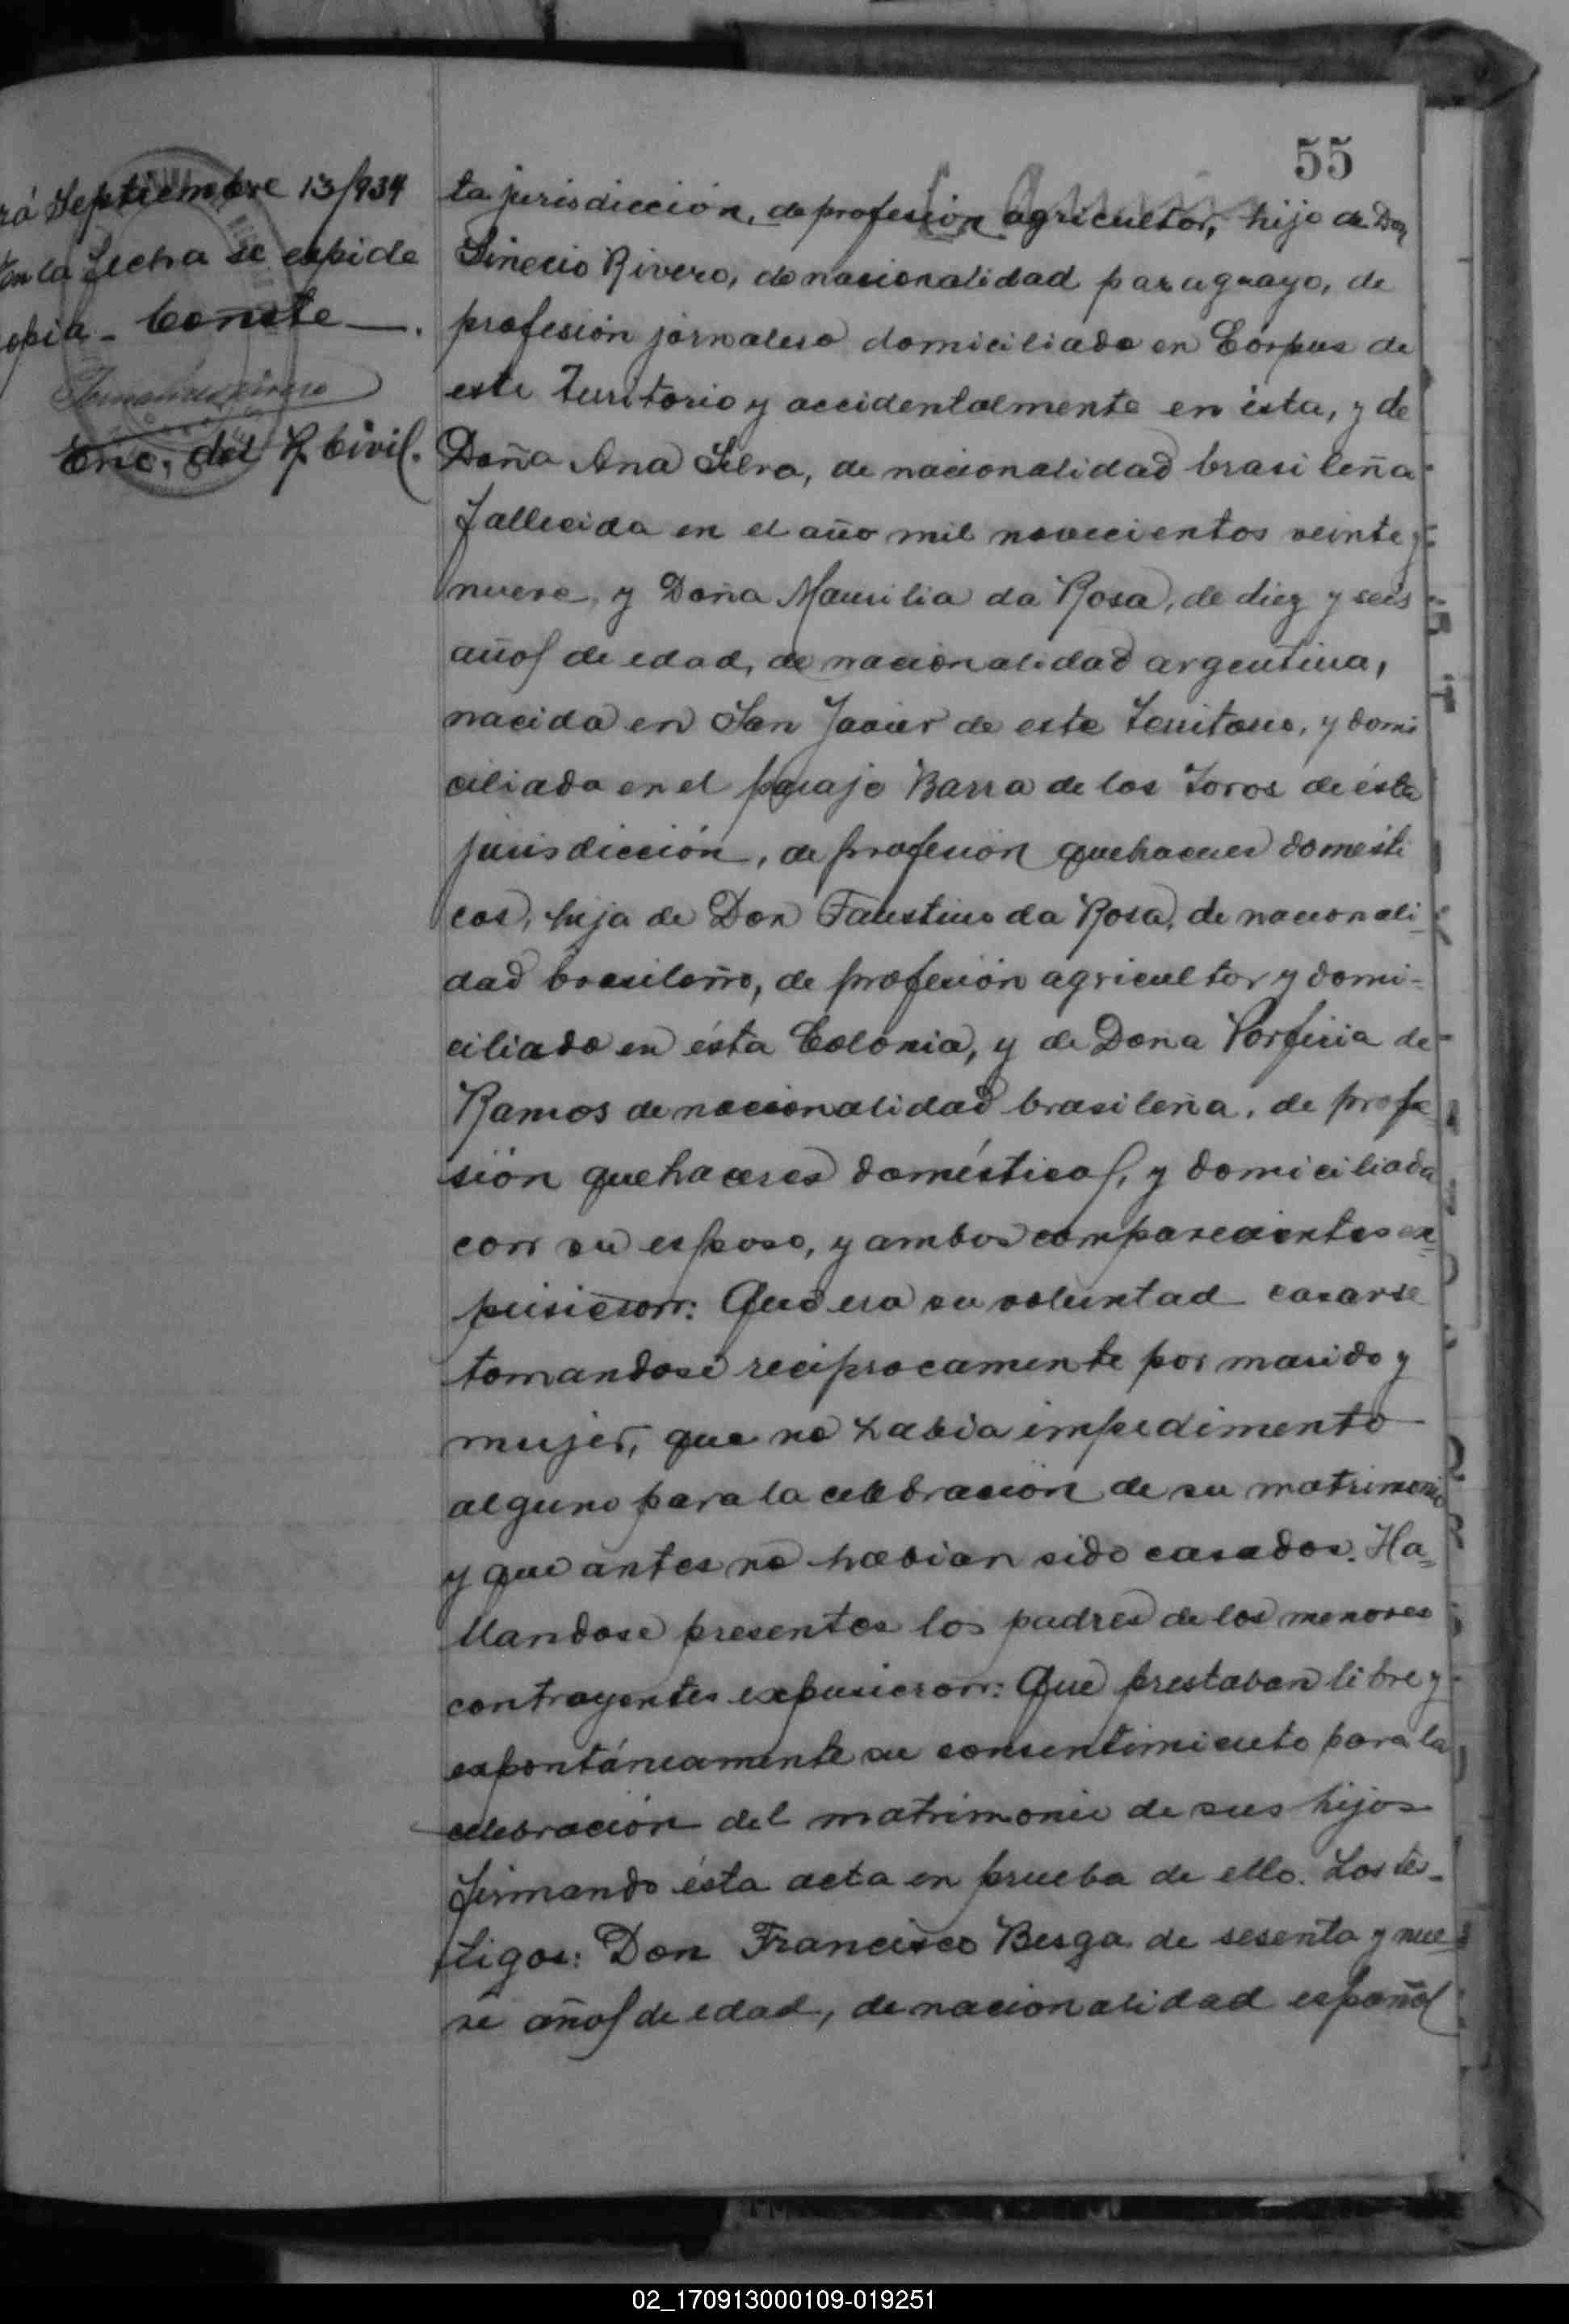 55
Septiembre 13/934
en la fecha se expide
copia - Conste
Enc. del R. Civil.
ta jurisdicción, de profesión agricultor, hijo de Don
Sinecio Rivero, de nacionalidad paraguayo, de
profesión jornalero domiciliado en Corpus de
este Territorio y accidentalmente en ésta, y de
Doña Ana Silva, de nacionalidad brasileña
fallecida en el año mil novecientos veinte y
nueve, y Doña Maurilia da Rosa, de diez y seis
años de edad, de nacionalidad argentina,
nacida en San Javier de este Territorio, y domi
ciliada en el paraje Barra de los Toros de ésta
jurisdicción, de profesión quehaceres domésti
cos, hija de Don Faustino da Rosa, de nacionali-
dad brasileño, de profesión agricultor y domi-
ciliado en ésta Colonia, y de Dona Porfiria de
Ramos de nacionalidad brasileña, de profe-
sión quehaceres domésticos, y domiciliada
con su esposo, y ambos comparecientes ex-
pusieron: Que era su voluntad casarse
tomandose reciprocamente por marido y
mujer, que no habia impedimento
alguno para la celebración de su matrimonio
y que antes no habian sido casados. Ha-
llandose presentes los padres de los menores
contrayentes expusieron: Que prestaban libre y
espontáneamente su consentimiento para la
celebración del matrimonio de sus hijos
firmando ésta acta en prueba de ello. Los tes-
tigos: Don Francisco Besga de sesenta y nue-
ve años de edad, de nacionalidad español
02_170913000109-019251